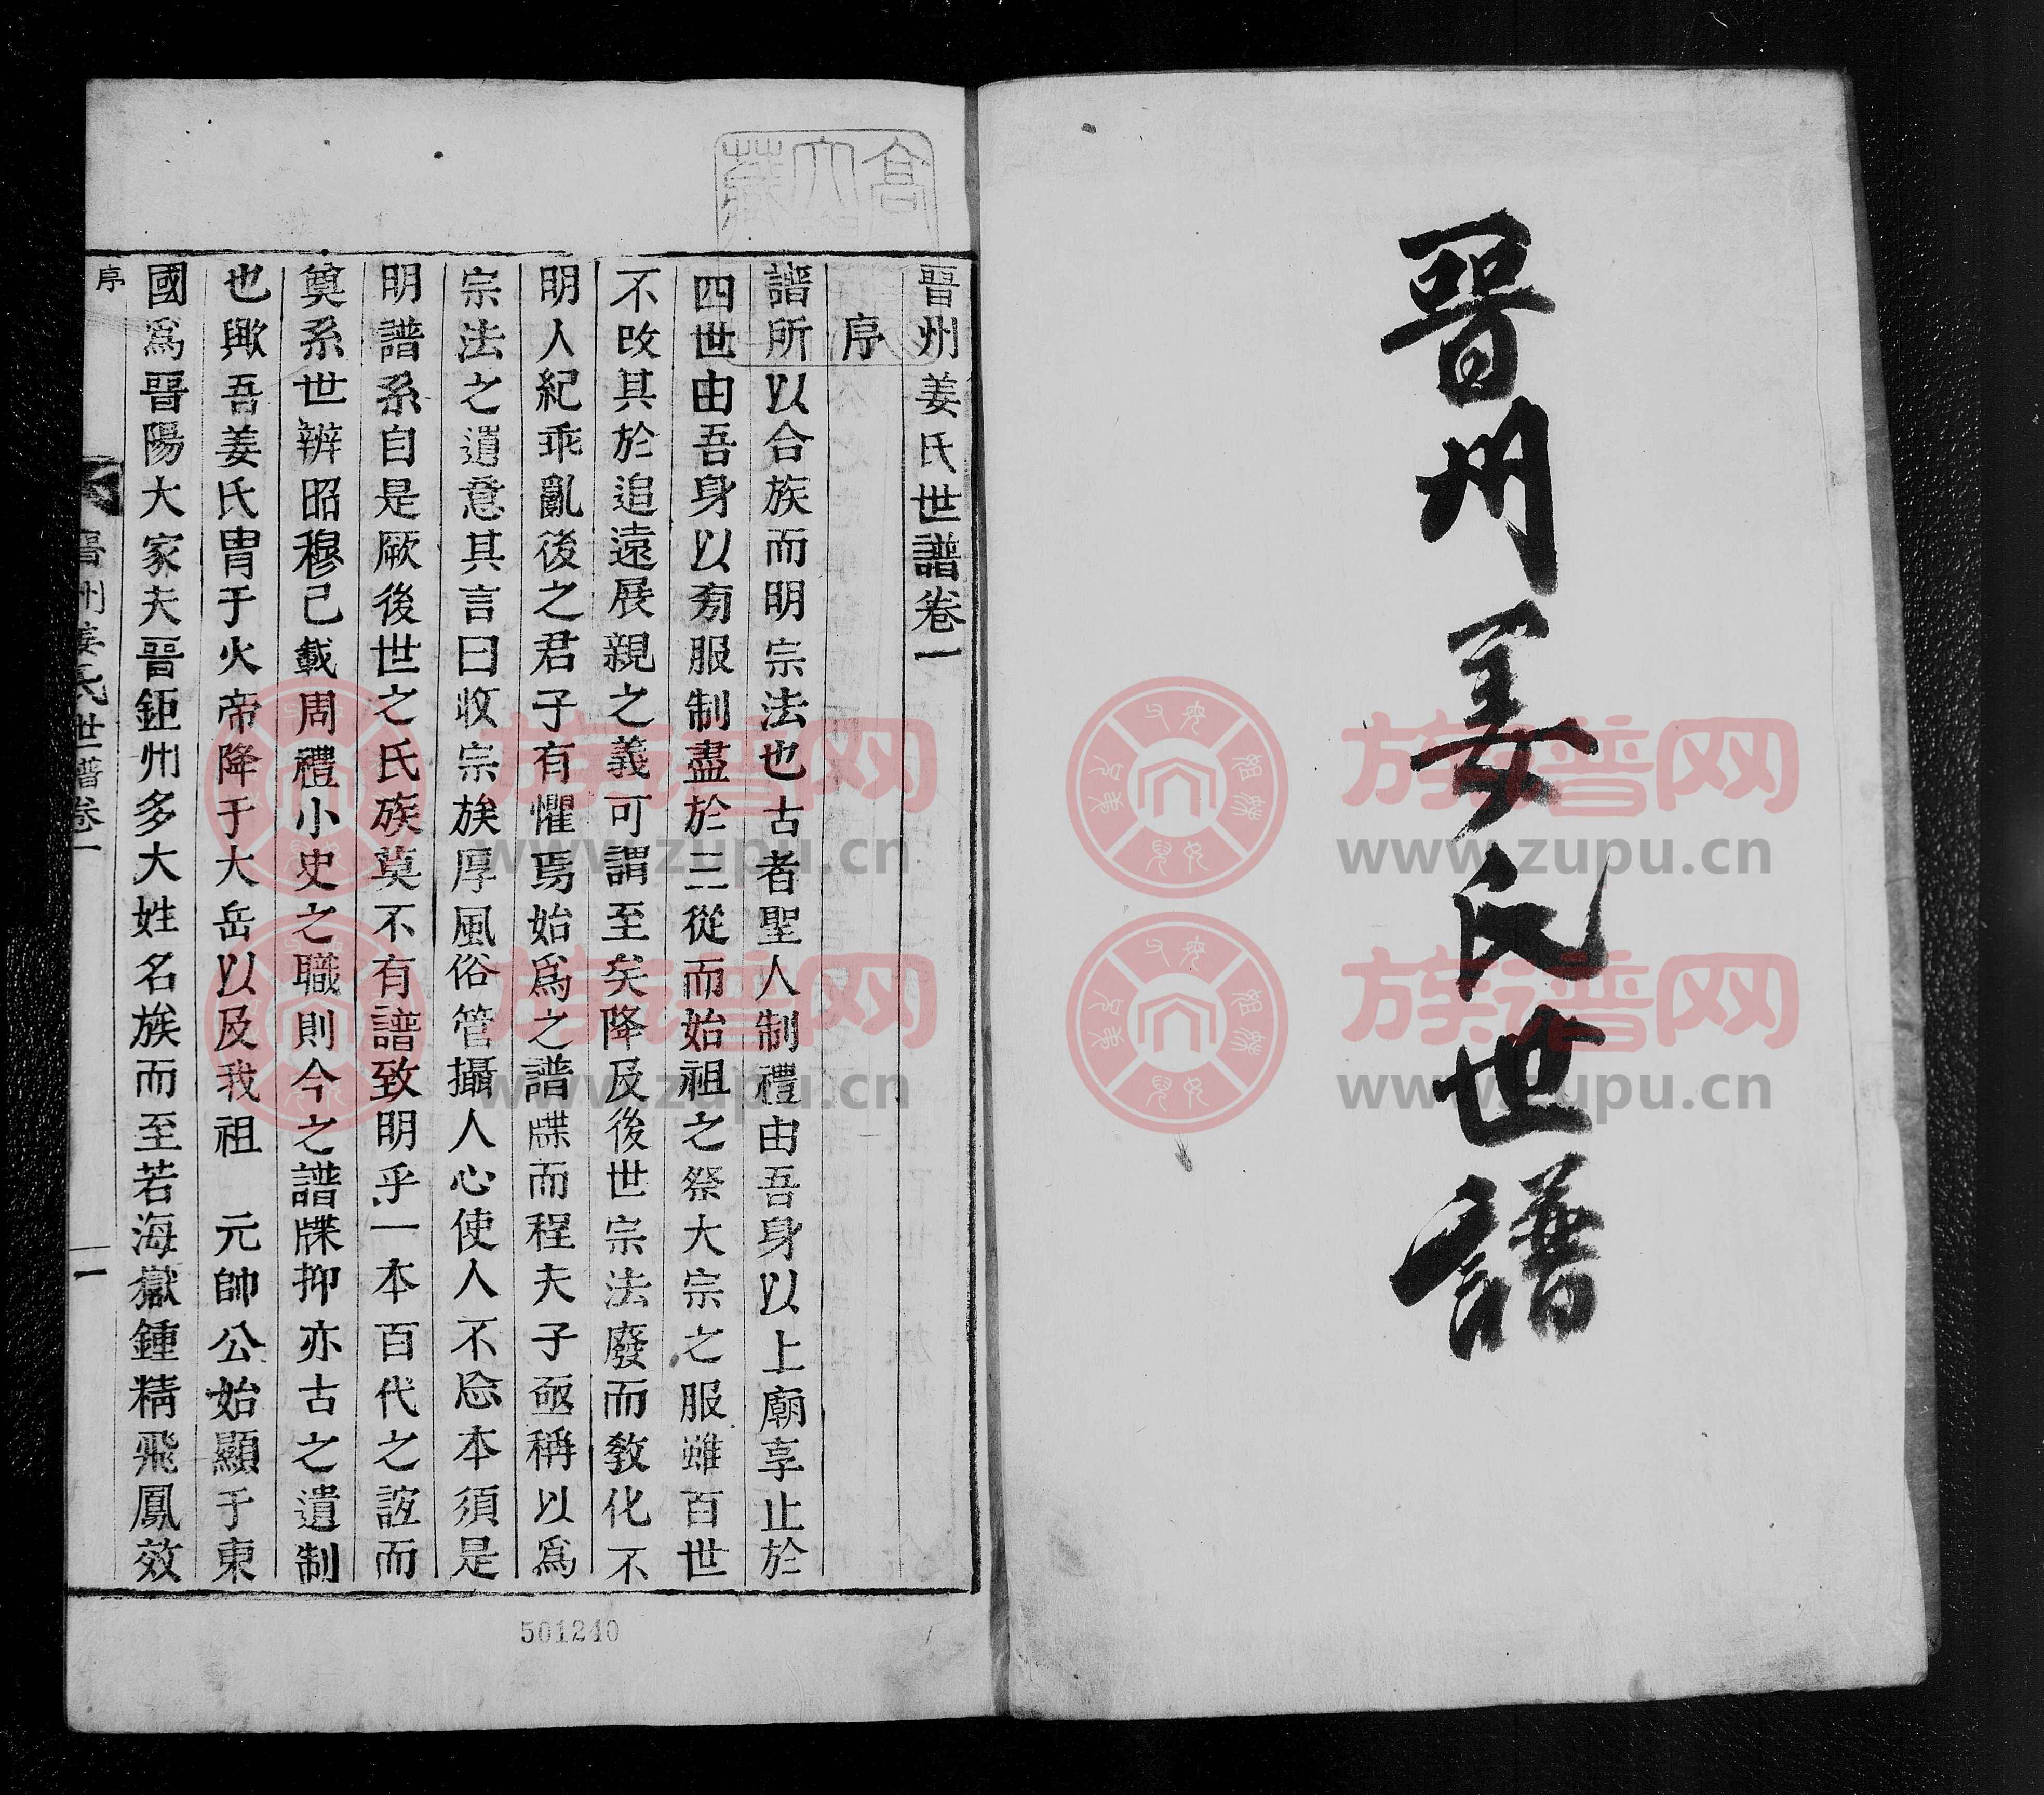 晋州姜氏世譜
晋州姜氏世譜卷一
序
譜所以合族而明宗法也古者聖人制禮由吾身以上廟享止於
四世由吾身以旁服制盡於三從而始祖之祭大宗之服雖百世
不改其於追遠展親之義可謂至矣降及後世宗法廢而敎化不
明人紀乖亂後之君子有懼焉始爲之譜牒而程夫子亟稱以爲
宗法之遺意其言曰收宗族厚風俗管攝人心使人不忘本須是
明譜系自是厥後世之氏族莫不有譜致明乎一本百代之誼而
奠系世辨昭穆已載周禮小史之職則今之譜牒抑亦古之遺制
也歟吾姜氏冑于火帝降于大岳以及我祖　元帥公始顯于東
國爲晋陽大家夫晋鉅州多大姓名族而至若海嶽鍾精飛鳳效
序
晋州姜氏世譜卷一
一
501240
族谱网
www.zupu.cn
族谱网
www.zupu.cn
族谱网
www.zupu.cn
族谱网
www.zupu.cn